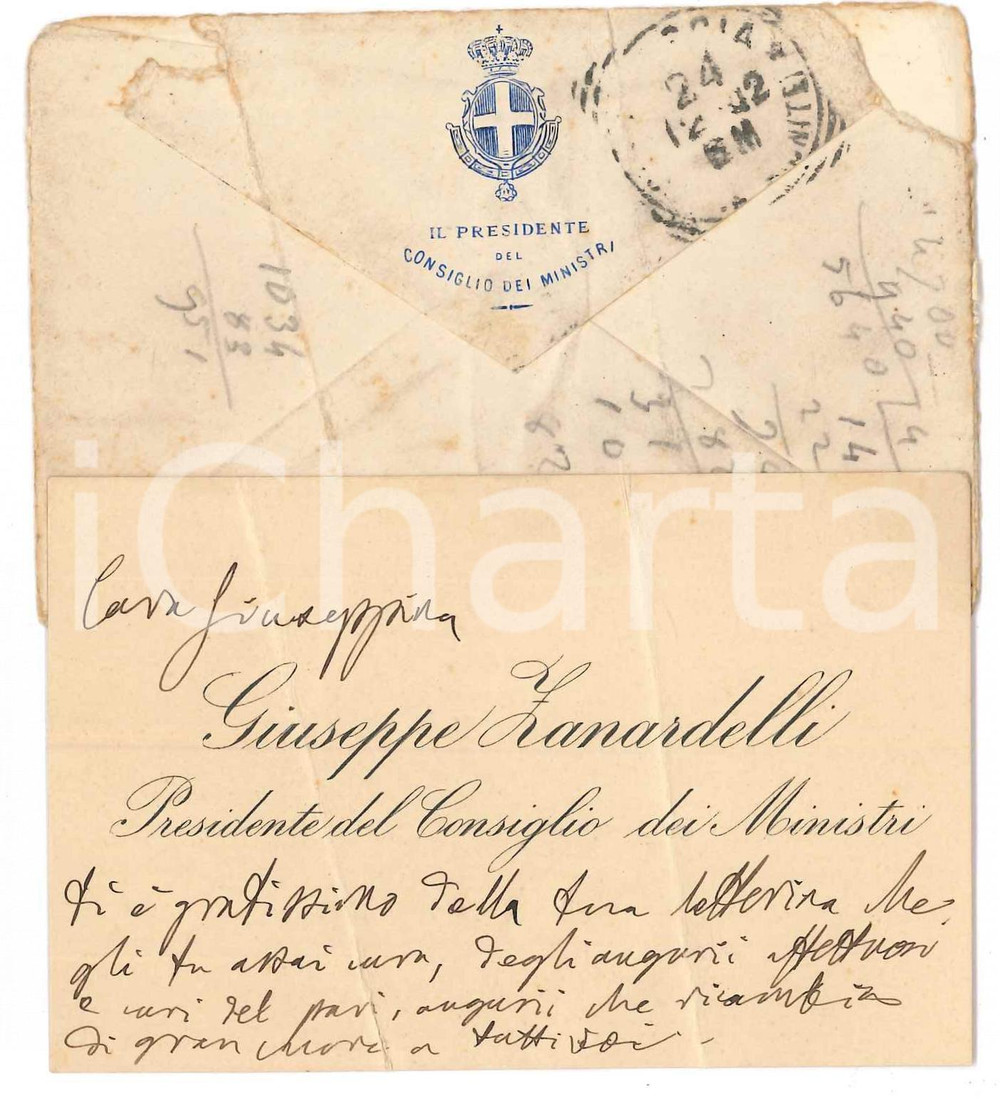 IL PRESIDENTE
DEL
CONSIGLIO DEI MINISTRI
24
1034
83
951
56 40
14
22
31
10
82
iCharta
Cara Giuseppina
Giuseppe Zanardelli
Presidente del Consiglio dei Ministri
ti è gratissimo della tua letterina che
gli fu assai cara, degli augurii affettuosi
e cari del pari, augurii che ricambia
di gran cuore a tutti voi.